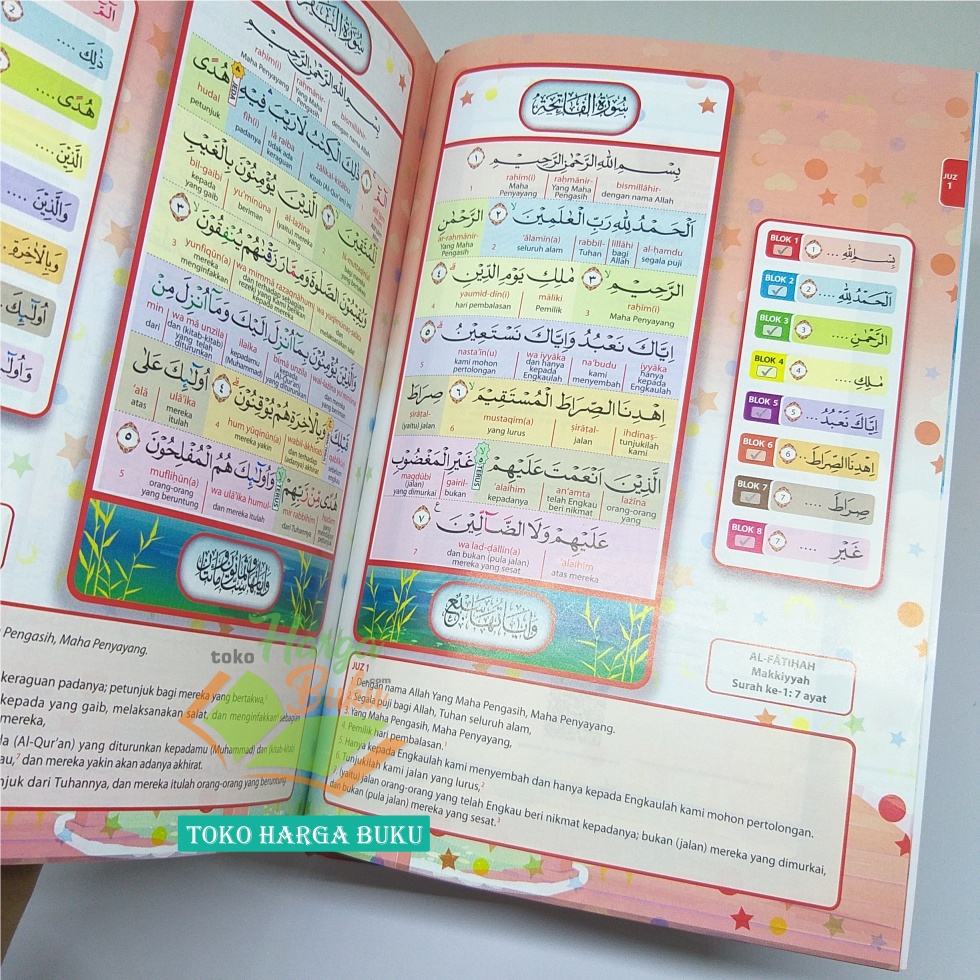 سُورَةُ الْفَاتِحَةِ
بِسْمِ اللّٰهِ الرَّحْمٰنِ الرَّحِيْمِ ١
bismillāhir- raḥmānir- raḥīm(i)
dengan nama Allah Yang Maha Pengasih Maha Penyayang 1
اَلْحَمْدُ لِلّٰهِ رَبِّ الْعٰلَمِيْنَ ٢ الرَّحْمٰنِ
al-ḥamdu lillāhi rabbil- ‘ālamīn(a) ar-raḥmānir-
segala puji bagi Allah Tuhan seluruh alam 2 Yang Maha Pengasih
الرَّحِيْمِ ٣ مٰلِكِ يَوْمِ الدِّيْنِ ٤
raḥīm(i) māliki yaumid-dīn(i)
Maha Penyayang 3 Pemilik hari pembalasan 4
اِيَّاكَ نَعْبُدُ وَاِيَّاكَ نَسْتَعِيْنُ ٥
iyyāka na‘budu wa iyyāka nasta‘īn(u)
hanya kepada Engkaulah kami menyembah dan hanya kepada Engkaulah kami mohon pertolongan 5
اِهْدِنَا الصِّرَاطَ الْمُسْتَقِيْمَ ٦ صِرَاطَ
ihdinaṣ- ṣirāṭal- mustaqīm(a) ṣirāṭal-
tunjukilah kami jalan yang lurus 6 (yaitu) jalan
الَّذِيْنَ اَنْعَمْتَ عَلَيْهِمْ غَيْرِ الْمَغْضُوْبِ
TERUS
lażīna an‘amta ‘alaihim gairil- magḍūbi
orang-orang yang telah Engkau beri nikmat kepadanya bukan (jalan) yang dimurkai
عَلَيْهِمْ وَلَا الضَّاۤلِّيْنَ ٧
‘alaihim wa laḍ-ḍāllīn(a)
atas mereka dan bukan (pula jalan) mereka yang sesat 7
وَاٰيَاتُهَا سَبْعٌ
JUZ 1
BLOK 1 ١ بِسْمِ اللّٰهِ ....
BLOK 2 2 اَلْحَمْدُ لِلّٰهِ ....
BLOK 3 3 الرَّحْمٰنِ ....
BLOK 4 4 مٰلِكِ ....
BLOK 5 5 اِيَّاكَ نَعْبُدُ ....
BLOK 6 6 اِهْدِنَا الصِّرَاطَ ....
BLOK 7 7 صِرَاطَ ....
BLOK 8 7 غَيْرِ ....
AL-FĀTIḤAH
Makkiyyah
Surah ke-1: 7 ayat
JUZ 1
1 Dengan nama Allah Yang Maha Pengasih, Maha Penyayang.
2 Segala puji bagi Allah, Tuhan seluruh alam,
3 Yang Maha Pengasih, Maha Penyayang,
4. Pemilik hari pembalasan.1
5. Hanya kepada Engkaulah kami menyembah dan hanya kepada Engkaulah kami mohon pertolongan.
6. Tunjukilah kami jalan yang lurus,2
7 (yaitu) jalan orang-orang yang telah Engkau beri nikmat kepadanya; bukan (jalan) mereka yang dimurkai,
dan bukan (pula jalan) mereka yang sesat.3
بِسْمِ اللّٰهِ الرَّحْمٰنِ الرَّحِيْمِ
bismillāhir- raḥmānir- raḥīm(i)
dengan nama Allah Yang Maha Pengasih Maha Penyayang
ذٰلِكَ الْكِتٰبُ لَا رَيْبَ فِيْهِ هُدًى
JEDA
żālikal-kitābu lā raiba fīh(i) hudal
Kitab (Al-Qur'an) ini tidak ada keraguan padanya petunjuk
لِّلْمُتَّقِيْنَ ٢ الَّذِيْنَ يُؤْمِنُوْنَ بِالْغَيْبِ
al-lażīna yu'minūna bil-gaibi
(yaitu) mereka yang beriman kepada yang gaib
وَيُقِيْمُوْنَ الصَّلٰوةَ وَمِمَّا رَزَقْنٰهُمْ يُنْفِقُوْنَ ٣
wa yuqīmūnaṣ-ṣalāta wa mimmā razaqnāhum yunfiqūn(a)
وَالَّذِيْنَ يُؤْمِنُوْنَ بِمَآ اُنْزِلَ اِلَيْكَ وَمَآ اُنْزِلَ مِنْ
bimā unzila ilaika wa mā unzila min
kepadamu (Muhammad) dan (kitab-kitab) yang telah diturunkan dari
قَبْلِكَ وَبِالْاٰخِرَةِ هُمْ يُوْقِنُوْنَ ٤ اُولٰۤىِٕكَ عَلٰى
hum yūqinūn(a) ulā'ika ‘alā
mereka yakin 4 mereka itulah atas
هُدًى مِّنْ رَّبِّهِمْ وَاُولٰۤىِٕكَ هُمُ الْمُفْلِحُوْنَ ٥
TERUS
mir rabbihim wa ulā'ika humul- mufliḥūn(a)
dari Tuhannya dan mereka itulah orang-orang yang beruntung 5
ذٰلِكَ ....
هُدًى ....
الَّذِيْنَ ....
وَالَّذِيْنَ ....
وَبِالْاٰخِرَةِ
اُولٰۤىِٕكَ
Pengasih, Maha Penyayang.
keraguan padanya; petunjuk bagi mereka yang bertakwa,
kepada yang gaib, melaksanakan salat, dan menginfakkan sebagian
mereka,
(Al-Qur'an) yang diturunkan kepadamu (Muhammad) dan (kitab-kitab)
au,2 dan mereka yakin akan adanya akhirat.
njuk dari Tuhannya, dan mereka itulah orang-orang yang beruntung.
toko Harga Buku .com
TOKO HARGA BUKU